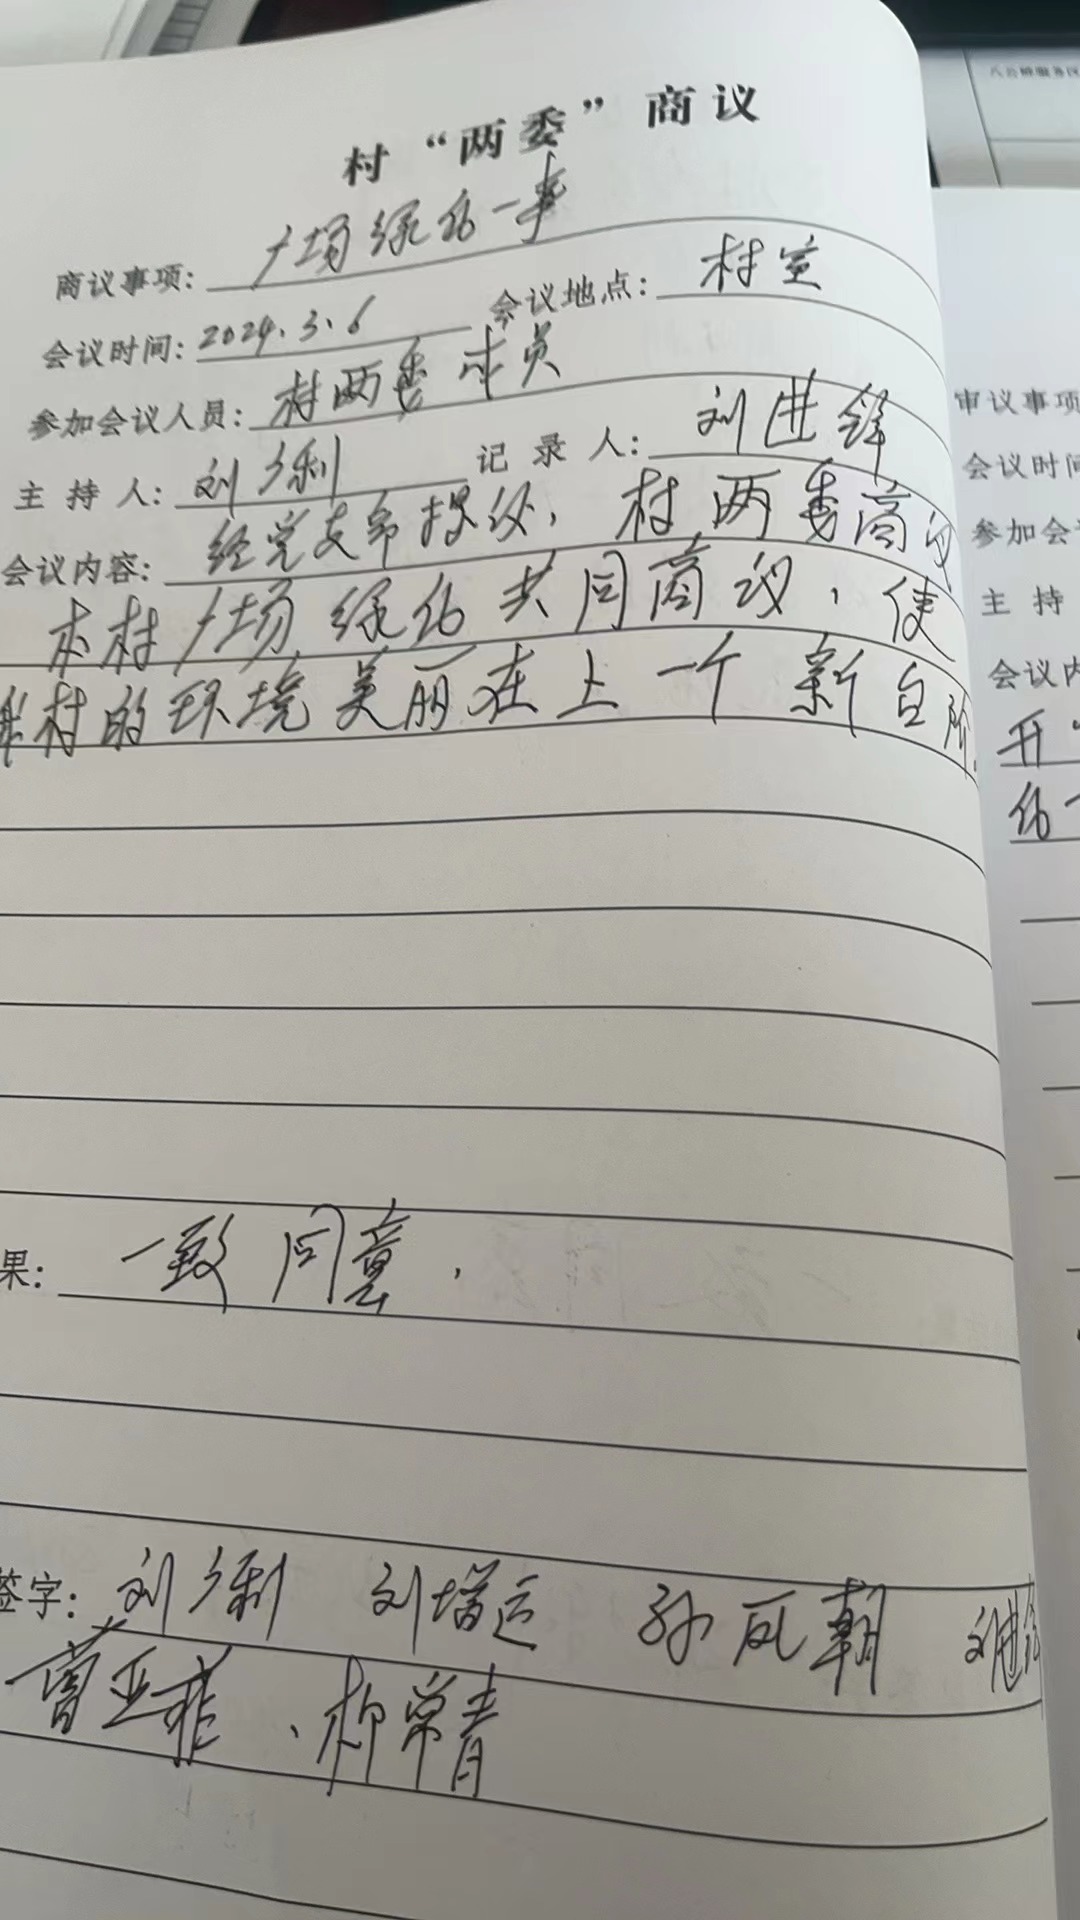 村“两委”商议
商议事项：广场绿化一事
会议时间：2024.3.6 会议地点：村室
参加会议人员：村两委成员
主持人：刘利 记录人：刘进锋
会议内容：经党支部提议，村两委商议
本村广场绿化共同商议，使
我村的环境美丽在上一个新台阶.
果：一致同意.
签字：刘利 刘增运 孙凤朝 刘进锋
曹亚菲、柳常青
审议事项
会议时间
参加会
主持
会议内
开
化